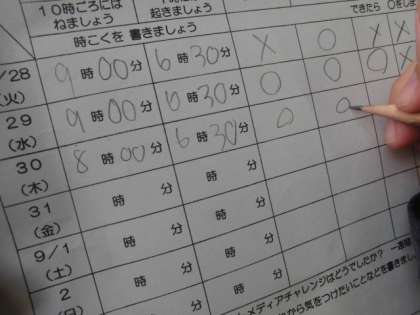 10時ごろには
ねましょう
起きましょう
できたら
時こくを 書きましょう
/28
(火)
9時00分 6時30分 X O X X
29
(水)
9時00分 6時30分 O O O X
30
(木)
8時00分 6時30分 O O
31
(金)
時 分 時 分
9/1
(土)
時 分 時 分
2
時 分 時 分
メディアチャレンジはどうでしたか? 一週間
から気をつけたいことなどを書きまし